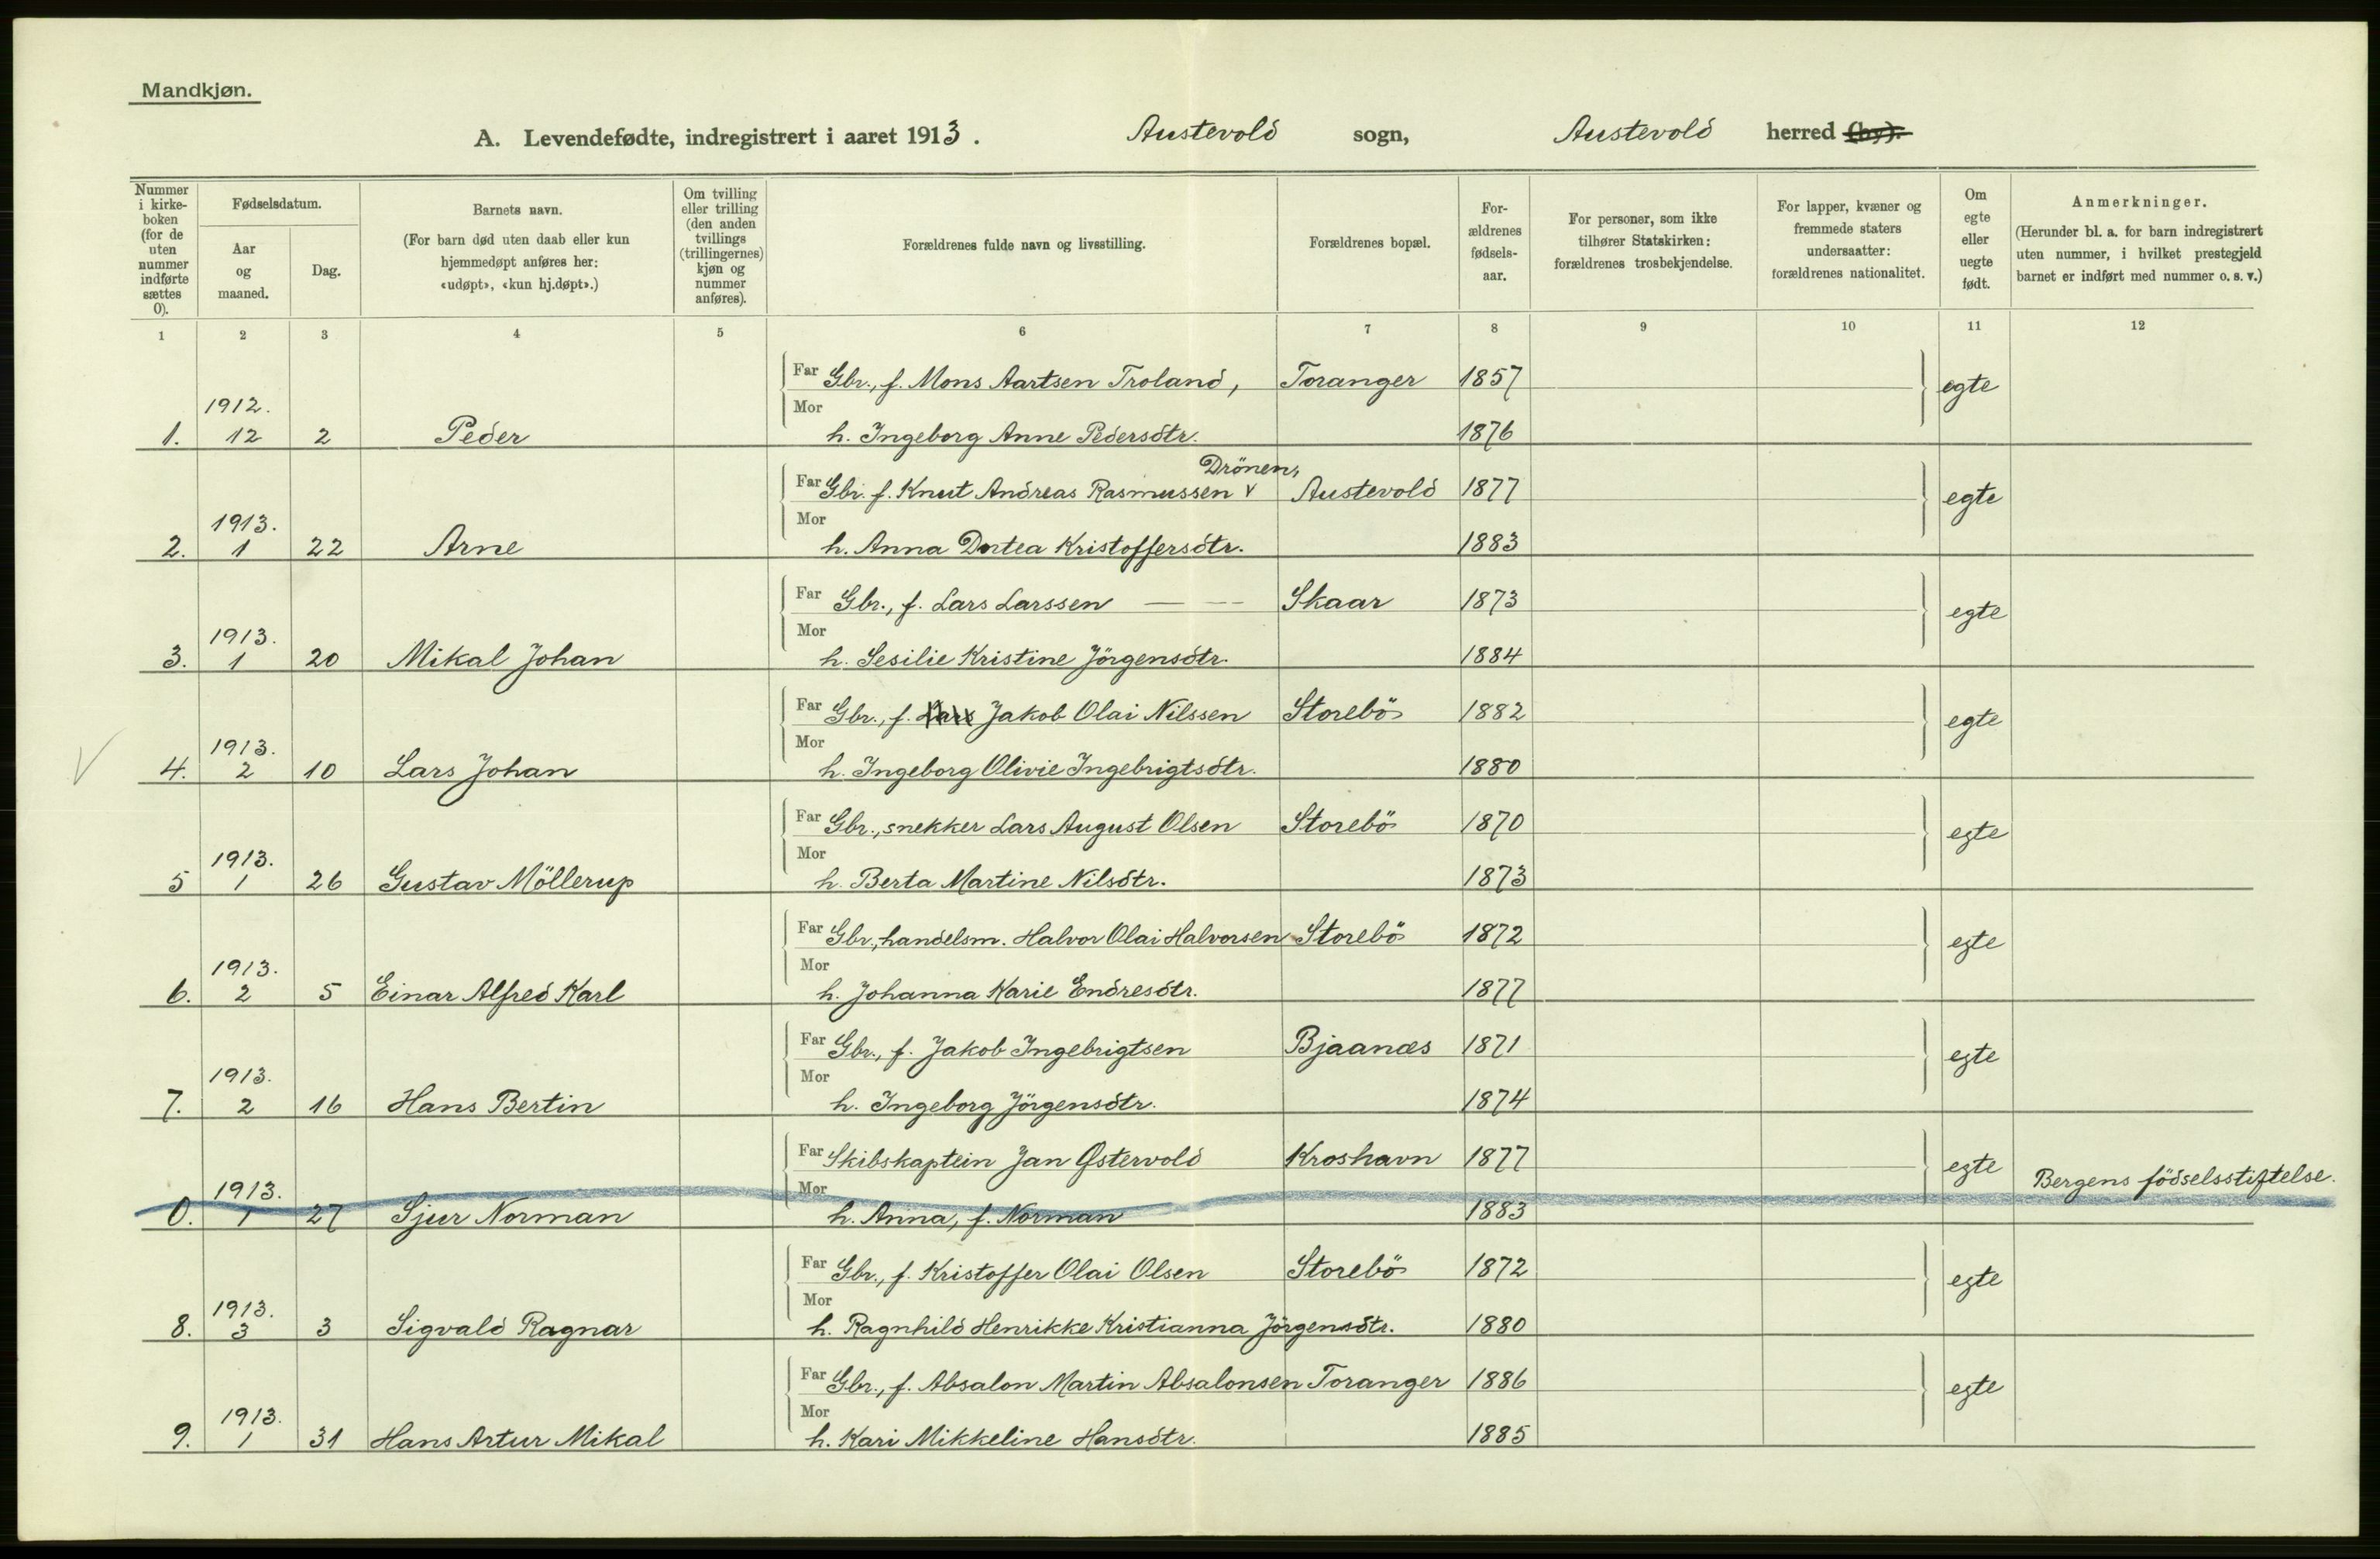 Mandkjøn.
A. Levendefødte, indregistrert i aaret 1913. Austevold sogn, Austevold herred (by).
Nummer i kirke-boken (for de uten nummer indførte sættes 0).
Fødselsdatum.
Aar og maaned.
Dag.
Barnets navn.
(For barn død uten daab eller kun hjemmedøpt anføres her: «udøpt», «kun hj.døpt».)
Om tvilling eller trilling (den anden tvillings (trillingernes) kjøn og nummer anføres).
Forældrenes fulde navn og livsstilling.
Forældrenes bopæl.
For-ældrenes fødsels-aar.
For personer, som ikke tilhører Statskirken: forældrenes trosbekjendelse.
For lapper, kvæner og fremmede staters undersaatter: forældrenes nationalitet.
Om egte eller uegte født.
Anmerkninger.
(Herunder bl. a. for barn indregistrert uten nummer, i hvilket prestegjeld barnet er indført med nummer o. s. v.)
1 2 3 4 5 6 7 8 9 10 11 12
Far Gbr., f. Mons Aartsen Troland, Toranger 1857 egte
1912.
Mor
1. 12 2 Peder h. Ingeborg Anne Pedersdtr. 1876
Drönen,
Far Gbr. f. Knut Andreas Rasmussen v Austevold 1877 egte
1913.
Mor
2. 1 22 Arne h. Anna Dortea Kristoffersdtr. 1883
Far Gbr., f. Lars Larssen — — Skaar 1873 egte
1913.
Mor
3. 1 20 Mikal Johan h. Sesilie Kristine Jörgensdtr. 1884
Far Gbr., f. Lars Jakob Olai Nilssen Storebö 1882 egte
1913.
Mor
V 4. 2 10 Lars Johan h. Ingeborg Olivie Ingebrigtsdtr. 1880
Far Gbr., snekker Lars August Olsen Storebö 1870 egte
1913.
Mor
5 1 26 Gustav Möllerup h. Berta Martine Nilsdtr. 1873
Far Gbr., handelsm. Halvor Olai Halvorsen Storebö 1872 egte
1913.
Mor
6. 2 5 Einar Alfred Karl h. Johanna Karie Endresdtr. 1877
Far Gbr., f. Jakob Ingebrigtsen Bjaanæs 1871 egte
1913.
Mor
7. 2 16 Hans Bertin h. Ingeborg Jörgensdtr. 1874
Far Skibskaptein Jan Østervold Kroshavn 1877 egte Bergens födselsstiftelse.
1913.
Mor
0. 1 27 Sjur Norman h. Anna, f. Norman 1883
Far Gbr., f. Kristoffer Olai Olsen Storebö 1872 egte
1913.
Mor
8. 3 3 Sigvald Ragnar h. Ragnhild Henrikke Kristianna Jörgensdtr. 1880
Far Gbr., f. Absalon Martin Absalonsen Toranger 1886 egte
1913.
Mor
9. 1 31 Hans Artur Mikal h. Kari Mikkeline Hansdtr. 1885